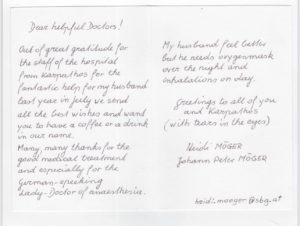 Dear helpful Doctors!
Out of great gratitude for
the staff of the hospital
from Karpathos for the
fantastic help for my husband
last year in july we send
all the best wishes and want
you to have a coffee or a drink
in our name.
Many, many thanks for the
good medical treatment
and especially for the
German-speeking
Lady-Doctor of anaesthesia.
My husband feel better
but he needs oxygenmask
over the night and
inhalations on day.
Greetings to all of you
and Karpathos
(with tears in the eyes)
Heidi MÖGER
Johann Peter MÖGER
heidi.moeger@sbg.at